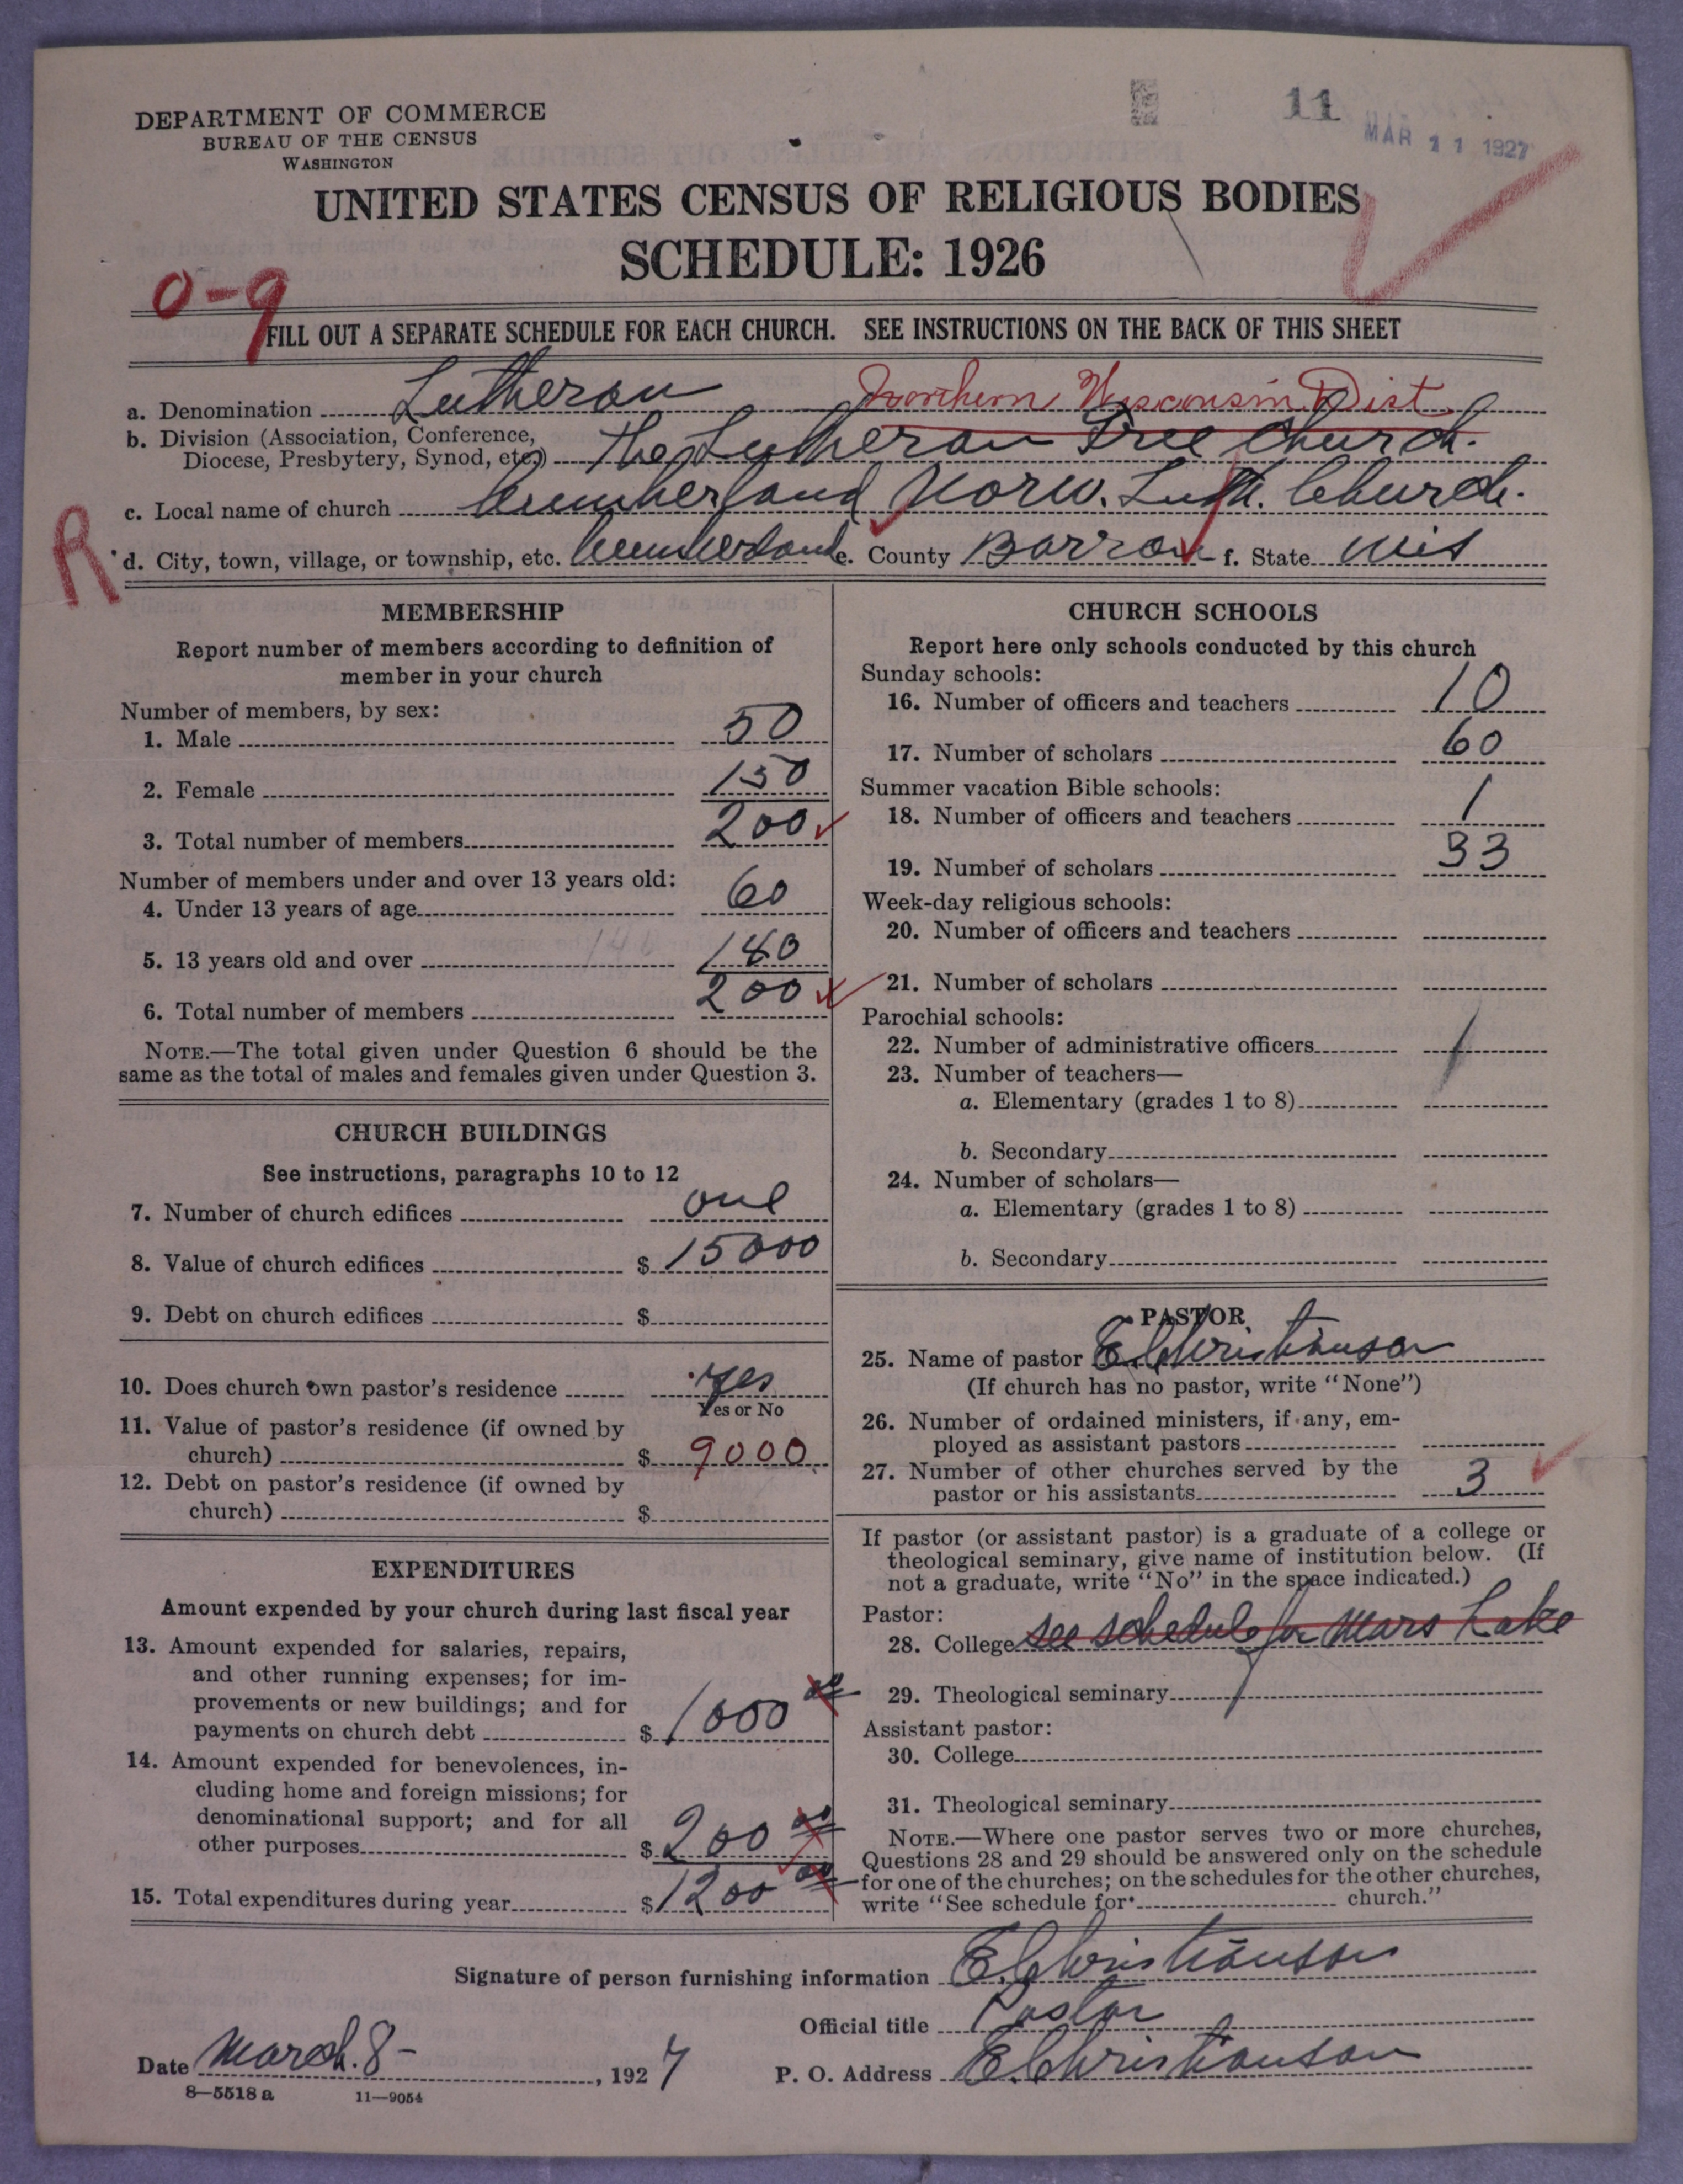 DEPARTMENT OF COMMERCE
BUREAU OF THE CENSUS
WASHINGTON
11
MAR 11 1927
UNITED STATES CENSUS OF RELIGIOUS BODIES
SCHEDULE: 1926
0-9
FILL OUT A SEPARATE SCHEDULE FOR EACH CHURCH. SEE INSTRUCTIONS ON THE BACK OF THIS SHEET
a. Denomination Lutheran Northern Wisconsin Dist
b. Division (Association, Conference,
Diocese, Presbytery, Synod, etc.) The Lutheran Free Church.
c. Local name of church Cumberland Norw. Luth. Church.
R
d. City, town, village, or township, etc. Cumberland e. County Barron f. State Wis
MEMBERSHIP
Report number of members according to definition of
member in your church
Number of members, by sex:
1. Male 50
2. Female 150
3. Total number of members 200
Number of members under and over 13 years old:
4. Under 13 years of age 60
5. 13 years old and over 140
6. Total number of members 200
NOTE.—The total given under Question 6 should be the
same as the total of males and females given under Question 3.
CHURCH BUILDINGS
See instructions, paragraphs 10 to 12
7. Number of church edifices one
8. Value of church edifices $ 15000
9. Debt on church edifices $
10. Does church own pastor's residence Yes
Yes or No
11. Value of pastor's residence (if owned by
church) $ 9000
12. Debt on pastor's residence (if owned by
church) $
EXPENDITURES
Amount expended by your church during last fiscal year
13. Amount expended for salaries, repairs,
and other running expenses; for im-
provements or new buildings; and for
payments on church debt $ 1000 00
14. Amount expended for benevolences, in-
cluding home and foreign missions; for
denominational support; and for all
other purposes $ 200 00
15. Total expenditures during year $ 1200 00
CHURCH SCHOOLS
Report here only schools conducted by this church
Sunday schools:
16. Number of officers and teachers 10
17. Number of scholars 60
Summer vacation Bible schools:
18. Number of officers and teachers 1
19. Number of scholars 33
Week-day religious schools:
20. Number of officers and teachers
21. Number of scholars
Parochial schools:
22. Number of administrative officers
23. Number of teachers—
a. Elementary (grades 1 to 8)
b. Secondary
24. Number of scholars—
a. Elementary (grades 1 to 8)
b. Secondary
PASTOR
25. Name of pastor E. Christianson
(If church has no pastor, write "None")
26. Number of ordained ministers, if any, em-
ployed as assistant pastors
27. Number of other churches served by the
pastor or his assistants 3
If pastor (or assistant pastor) is a graduate of a college or
theological seminary, give name of institution below. (If
not a graduate, write "No" in the space indicated.)
Pastor:
28. College see schedule for Mars Lake
29. Theological seminary
Assistant pastor:
30. College
31. Theological seminary
NOTE.—Where one pastor serves two or more churches,
Questions 28 and 29 should be answered only on the schedule
for one of the churches; on the schedules for the other churches,
write "See schedule for church."
Signature of person furnishing information E. Christianson
Official title Pastor
Date March 8- , 1927 P. O. Address E. Christianson
8—5518 a 11—9054